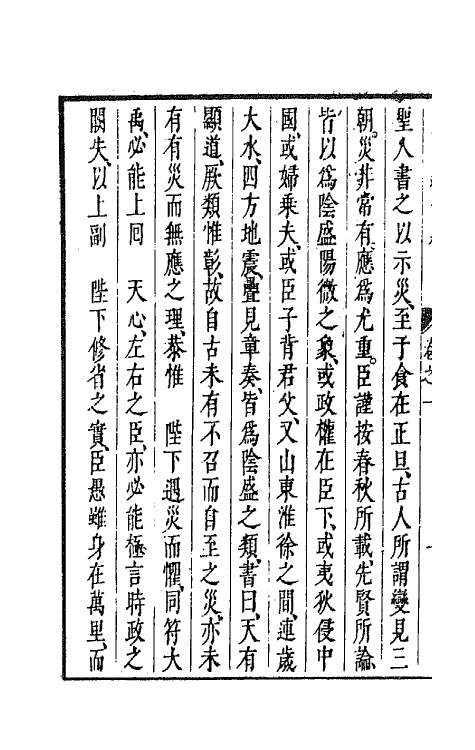 聖人書之以示災、至于食在正旦、古人所謂變見三
朝。災非常有、應爲尤重。臣謹按春秋所載、先賢所論、
皆以爲陰盛陽微之象、或政權在臣下、或夷狄侵中
國、或婦乗夫、或臣子背君父、又山東淮徐之間、連歲
大水、四方地震、疊見章奏、皆爲陰盛之類、書曰、天有
顯道、厥類惟彰、故自古未有不召而自至之災、亦未
有有災而無應之理、恭惟 陛下遇災而懼、同符大
禹、必能上囘 天心、左右之臣、亦必能極言時政之
闕失、以上副 陛下修省之實、臣愚雖身在萬里、而